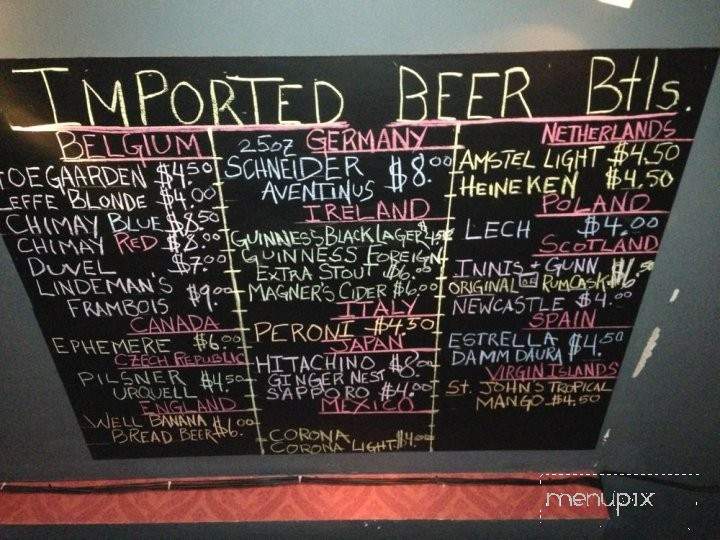 IMPORTED BEER Btls.
BELGIUM
OEGAARDEN $4.50
LEFFE BLONDE $4.00
CHIMAY BLUE $8.50
CHIMAY RED $8.00
DUVEL $7.00
LINDEMAN'S
FRAMBOIS $9.00
CANADA
EPHEMERE $6.00
CZECH REPUBLIC
PILSNER
URQUELL $4.50
ENGLAND
WELL BANANA
BREAD BEER $6.00
25oz GERMANY
SCHNEIDER
AVENTINUS $8.00
IRELAND
GUINNESS BLACK LAGER
GUINNESS FOREIGN
EXTRA STOUT $6.00
MAGNER'S CIDER $6.00
ITALY
PERONI $4.50
JAPAN
HITACHINO $8.00
GINGER NEST
SAPPORO $4.00
MEXICO
CORONA
CORONA LIGHT $4.00
NETHERLANDS
AMSTEL LIGHT $4.50
HEINEKEN $4.50
POLAND
LECH $4.00
SCOTLAND
INNIS + GUNN
ORIGINAL OR RUM CASK $6.50
NEWCASTLE $4.00
SPAIN
ESTRELLA
DAMM DAURA $4.50
VIRGIN ISLANDS
ST. JOHN'S TROPICAL
MANGO $4.50
menupix